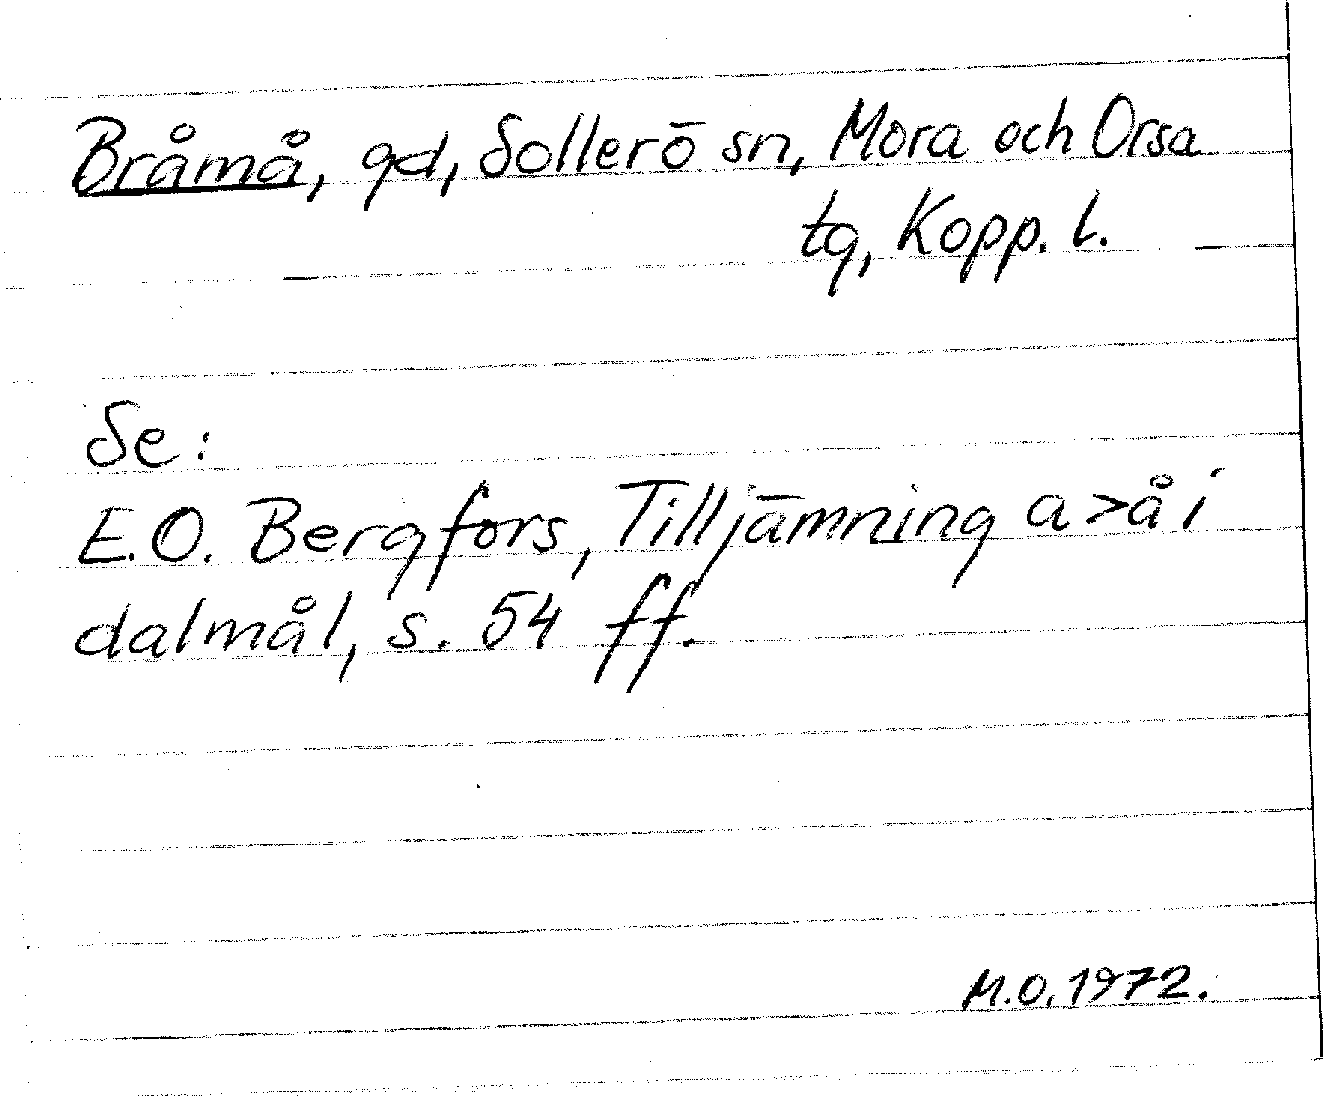 Bråmå, gd, Sollerö sn, Mora och Orsa
tg, Kopp. l.
Se:
E.O. Bergfors, Tilljämning a>å i
dalmål, s. 54 ff.
M.O. 1972.